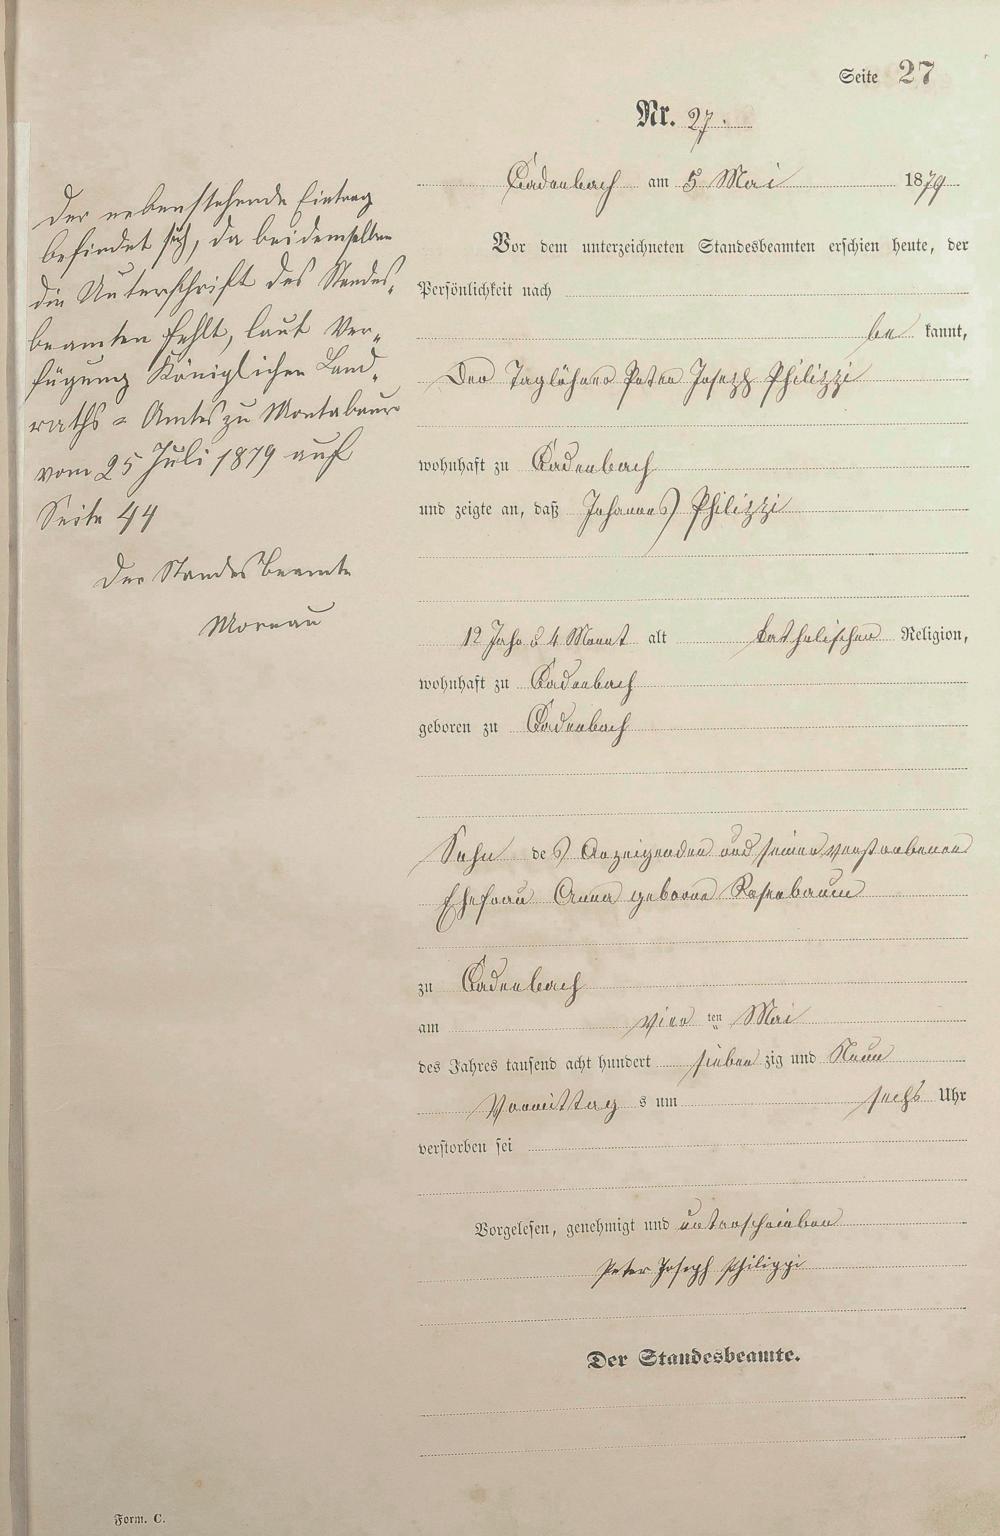 Seite 27
Nr. 27.
Der nebenstehende Eintrag
befindet sich, da bei demselben
die Unterschrift des Standes-
beamten fehlt, laut Ver-
fügung Königlichen Land-
raths-Amtes zu Montabaur
vom 25 Juli 1879 auf
Seite 44
Der Standesbeamte
Moreau
Cadenbach am 5 Mai 1879
Vor dem unterzeichneten Standesbeamten erschien heute, der
Persönlichkeit nach
be kannt,
Der Taglöhner Peter Joseph Philippi
wohnhaft zu Cadenbach
und zeigte an, daß Johannes Philippi
12 Jahr & 4 Monat alt katholischer Religion,
wohnhaft zu Cadenbach
geboren zu Cadenbach
Sohn des Anzeigenden und seiner verstorbenen
Ehefrau Anna geborne Rosenbaum
zu Cadenbach
am vier ten Mai
des Jahres tausend acht hundert sieben zig und Neun
Vormittag s um sechs Uhr
verstorben sei
Vorgelesen, genehmigt und unterschrieben
Peter Joseph Philippi
Der Standesbeamte.
Form. C.